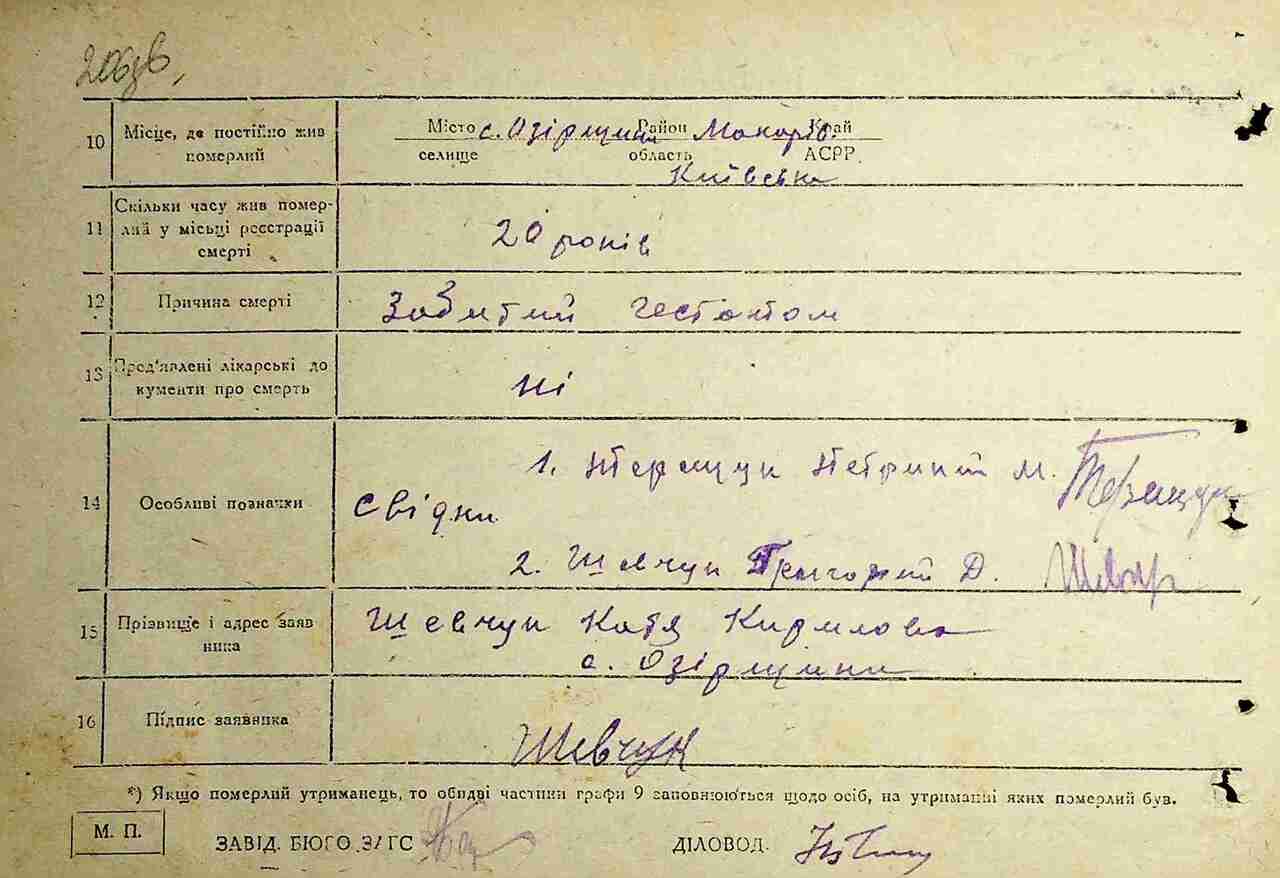 206зв
10 Місце, де постійно жив Місто с. Озірщина Район Макарів. Край
померлий селище область АСРР
Київська
Скільки часу жив помер-
11 лий у місьці реєстрації 20 років
смерті
12 Причина смерті Забитий гестопом
13 Пред'явлені лікарські до ні
кументи про смерть
1. Терещук Петриній М. Терещук
14 Особливі познаки Свідки
2. Шевчук Григорий Д. Шевчук
15 Прізвище і адрес заяв Шевчук Катя Кирилова
ника с. Озірщина
16 Підпис заявника Шевчук
*) Якщо померлий утриманець, то обидві частини графи 9 заповнюються щодо осіб, на утриманні яких померлий був.
М. П. ЗАВІД. БЮРО ЗАГС ДІЛОВОД.